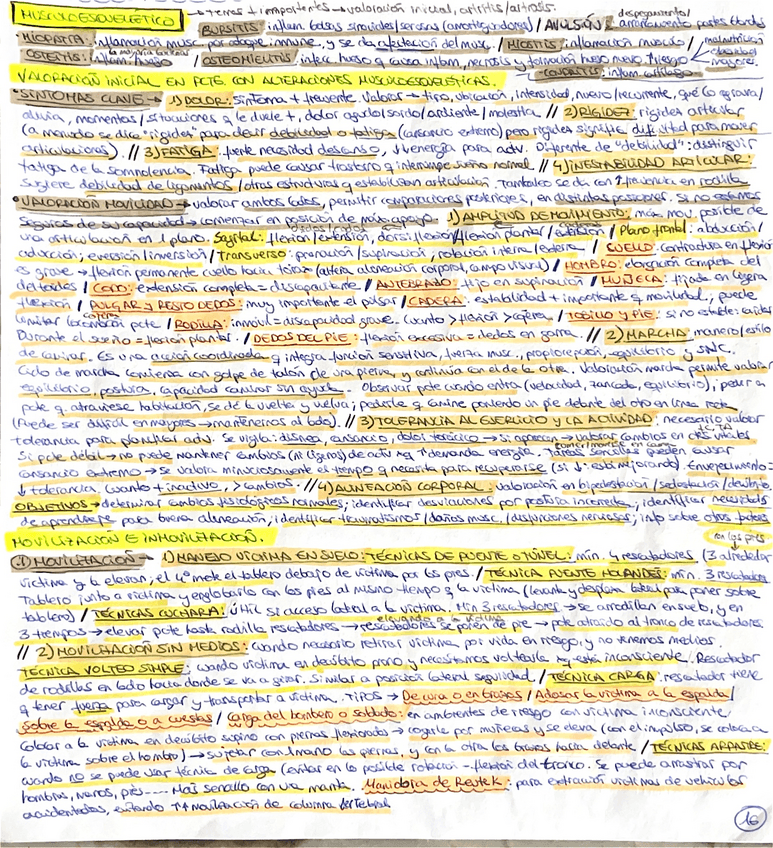 MUSCULOESQUELÉTICO → temas + importantes → valoración inicial, artritis/artrosis. despegamiento/
BURSITIS inflam. bolsas sinoviales/serosas (amortiguadores) / AVULSIÓN: arrancamiento partes blandas
MIOPATÍA: inflamación musc. por ataque inmune, y se da afectación del musc. / MIOSITIS: inflamación músculo / malnutrición
OSTEITIS: inflam. hueso / OSTEOMIELITIS: infecc. hueso q causa inflam, necrosis y formación hueso nuevo. ↑ riesgo obesidad mayores
CONDRITIS: inflam. cartílago
VALORACIÓN INICIAL EN PCTE CON ALTERACIONES MUSCULOESQUELÉTICAS.
• SÍNTOMAS CLAVE → 1) DOLOR: síntoma + frecuente. Valorar → tipo, ubicación, intensidad, nuevo/recurrente, qué lo agrava/
alivia, momentos/situaciones q le duele +, dolor agudo/sordo/ardiente/molestia // 2) RIGIDEZ: rigidez articular
(a menudo se dice "rigidez" para decir debilidad o fatiga (cansancio extremo) pero rigidez significa dificultad para mover
articulaciones). // 3) FATIGA: fuerte necesidad descanso, ↓ energía para adv. Diferente de "debilidad": distinguir
fatiga de la somnolencia. Fatiga puede causar trastorno q interrumpe sueño normal // 4) INESTABILIDAD ARTICULAR:
sugiere debilidad de ligamentos/otras estructuras q estabilizan articulación. Tambaleo se da con ↑ frecuencia en rodilla
• VALORACIÓN MOVILIDAD → valorar ambos lados, permitir comparaciones posteriores, en distintas posiciones. Si no estamos
seguros de su capacidad → comenzar en posición de máx. apoyo. 1) AMPLITUD DE MOVIMIENTO: máx mov. posible de
una articulación en 1 plano. Sagital: flexión/extensión, dorsiflexión/flexión plantar / Plano frontal: abducción/
aducción; eversión/inversión / Transverso: pronación/supinación, rotación interna/externa / CUELLO: contractura en flexión
es grave → flexión permanente cuello hacia tórax (altera alineación corporal, campo visual) / HOMBRO: elevación completa del
deltoides / CODO: extensión completa = discapacitante / ANTEBRAZO: fijo en supinación / MUÑECA: fijada en ligera
flexión / PULGAR Y RESTO DEDOS: muy importante el pulgar / CADERA: estabilidad + importante q movilidad, puede
limitar locomoción pcte / RODILLA: inmóvil = discapacidad grave. Cuanto > flexión > cojera / TOBILLO Y PIE: si no estable: caídas
Durante el sueño = flexión plantar. / DEDOS DEL PIE: flexión excesiva = dedos en garra. // 2) MARCHA: manera/estilo
de caminar. Es una acción coordinada q integra función sensitiva, fuerza musc., propiocepción, equilibrio y SNC.
Ciclo de marcha comienza con golpe de talón de una pierna, y continúa con el de la otra. Valoración marcha permite valorar
equilibrio, postura, capacidad caminar sin ayuda. Observar pcte cuando entra (velocidad, zancada, equilibrio); pedir a
pcte q atraviese habitación, se dé la vuelta y vuelva; pedirle q camine poniendo un pie delante del otro en línea recta
(Puede ser difícil en mayores → mantenernos al lado). // 3) TOLERANCIA AL EJERCICIO Y LA ACTIVIDAD: necesario valorar
tolerancia para planificar adv. Se vigila: disnea, cansancio, dolor torácico → si aparecen → valorar cambios en ctes vitales
Si pcte débil → no puede mantener cambios de activ xq ↑ demanda energía. Tareas sencillas pueden causar
cansancio extremo → se valora minuciosamente el tiempo q necesita para recuperarse (si ↓ está mejorando). Envejecimiento =
↓ tolerancia (cuanto + inactivo, > cambios). // 4) ALINEACIÓN CORPORAL: valoración en bipedestación/sedestación/decúbito
OBJETIVOS → determinar cambios fisiológicos normales; identificar desviaciones por postura incorrecta; identificar necesidades
de aprendizaje para buena alineación; identificar traumatismos/daños musc./disfunciones nerviosas; info sobre otros factores
MOVILIZACIÓN E INMOVILIZACIÓN. con los pies
1) MOVILIZACIÓN → 1) MANEJO VÍCTIMA EN SUELO: TÉCNICAS DE PUENTE O TÚNEL: mín. 4 rescatadores (3 alrededor
víctima y la elevan, el 4º mete el tablero debajo de víctima por los pies. / TÉCNICA PUENTE HOLANDÉS: mín. 3 rescatadores
Tablero junto a víctima y englobarlo con los pies al mismo tiempo q la víctima (levanta y desplaza lateral para poner sobre
tablero) / TÉCNICAS CUCHARA: útil si acceso lateral a la víctima. Mín 3 rescatadores → se arrodillan en suelo, y en
3 tiempos → elevar pcte hasta rodilla rescatadores → rescatadores se ponen de pie elevando a la víctima → pcte atraído al tronco de rescatadores.
// 2) MOVILIZACIÓN SIN MEDIOS: cuando necesario retirar víctima por vida en riesgo, y no tenemos medios.
TÉCNICA VOLTEO SIMPLE: cuando víctima en decúbito prono y necesitamos voltearla xq está inconsciente. Rescatador
de rodillas en lado hacia donde se va a girar. Similar a posición lateral seguridad. / TÉCNICA CARGA: rescatador tiene
q tener fuerza para cargar y transportar a víctima. Tipos → De cuna o en brazos / Adosar la víctima a la espalda/
sobre la espalda o a cuestas / Carga del bombero o soldado: en ambientes de riesgo con víctima inconsciente/
colocar a la víctima en decúbito supino con piernas flexionadas → cogerla por muñecas y se eleva (con el impulso, se coloca a
la víctima sobre el hombro) → sujetar con 1 mano las piernas, y con la otra los brazos hacia delante / TÉCNICAS ARRASTRE:
cuando no se puede usar técnica de carga (evitar en lo posible rotación-flexión del tronco. Se puede arrastrar por
hombros, manos, pies.... Más sencillo con una manta. Maniobra de Reutek: para extracción víctimas de vehículos
accidentados, evitando ↑↑ movilización de columna vertebral
16